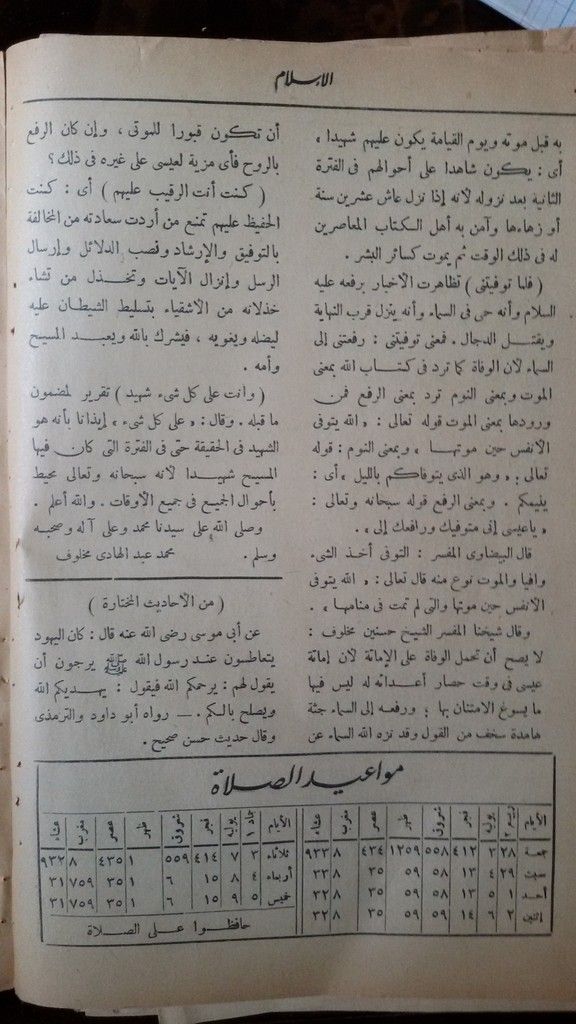 الإسلام
به قبل موته ويوم القيامة يكون عليهم شهيدا ،
أى : يكون شاهدا على أحوالهم فى الفترة
الثانية بعد نزوله لأنه إذا نزل عاش عشرين سنة
أو زهاءها وآمن به أهل الكتاب المعاصرين
له فى ذلك الوقت ثم يموت كسائر البشر .
( فلما توفيتنى ) تظاهرت الأخبار برفعه عليه
السلام وأنه حى فى السماء وأنه ينزل قرب النهاية
ويقتل الدجال . فمعنى توفيتنى : رفعتنى إلى
السماء لأن الوفاة كما ترد فى كتاب الله بمعنى
الموت وبمعنى النوم ترد بمعنى الرفع فمن
ورودها بمعنى الموت قوله تعالى : « الله يتوفى
الأنفس حين موتها » وبمعنى النوم : قوله
تعالى : « وهو الذى يتوفاكم بالليل » أى :
ينيمكم . وبمعنى الرفع قوله سبحانه وتعالى :
« ياعيسى إنى متوفيك ورافعك إلى » .
قال البيضاوى المفسر : التوفى أخذ الشىء
وافيا والموت نوع منه قال تعالى : « الله يتوفى
الأنفس حين موتها والتى لم تمت فى منامها » .
وقال شيخنا المفسر الشيخ حسنين مخلوف :
لا يصح أن تحمل الوفاة على الإماتة لأن إماتة
عيسى فى وقت حصار أعدائه له ليس فيها
ما يسوغ الامتنان بها ؛ ورفعه إلى السماء جثة
هامدة سخف من القول وقد نزه الله السماء عن
أن تكون قبورا للموتى ، وإن كان الرفع
بالروح فأى مزية لعيسى على غيره فى ذلك ؟
( كنت أنت الرقيب عليهم ) أى : كنت
الحفيظ عليهم تمنع من أردت سعادته من المخالفة
بالتوفيق والإرشاد ونصب الدلائل وإرسال
الرسل وإنزال الآيات وتخذل من تشاء
خذلانه من الأشقياء بتسليط الشيطان عليه
ليضله ويغويه ، فيشرك بالله ويعبد المسيح
وأمه .
( وانت على كل شىء شهيد ) تقرير لمضمون
ما قبله . وقال : « على كل شىء » إيذانا بأنه هو
الشهيد فى الحقيقة حتى فى الفترة التى كان فيها
المسيح شهيدا لأنه سبحانه وتعالى محيط
بأحوال الجميع فى جميع الأوقات . والله أعلم .
وصلى الله على سيدنا محمد وعلى آله وصحبه
وسلم . محمد عبد الهادى مخلوف
( من الأحاديث المختارة )
عن أبى موسى رضى الله عنه قال : كان اليهود
يتعاطسون عند رسول الله ﷺ يرجون أن
يقول لهم : يرحمكم الله فيقول : يهديكم الله
ويصلح بالكم . — رواه أبو داود والترمذى
وقال حديث حسن صحيح .
مواعيد الصلاة
الأيام يوليه فجر شروق ظهر عصر مغرب عشاء الأيام جماد ١ يوليه فجر شروق ظهر عصر مغرب عشاء
جمعة ٢٨ ٣ ٤١٢ ٥٥٨ ١٢٥٩ ٤٣٤ ٨ ٩٣٣ ثلاثاء ٣ ٧ ٤١٤ ٥٥٩ ١ ٤٣٥ ٨ ٩٣٢
سبت ٢٩ ٤ ١٣ ٥٨ ٥٩ ٣٥ ٨ ٣٣ أربعاء ٤ ٨ ١٥ ٦ ١ ٣٥ ٧٥٩ ٣١
أحد ١ ٥ ١٣ ٥٨ ٥٩ ٣٥ ٨ ٣٢ خميس ٥ ٩ ١٥ ٦ ١ ٣٥ ٧٥٩ ٣١
إثنين ٢ ٦ ١٤ ٥٩ ٥٩ ٣٥ ٨ ٣٢ حافظوا على الصلاة